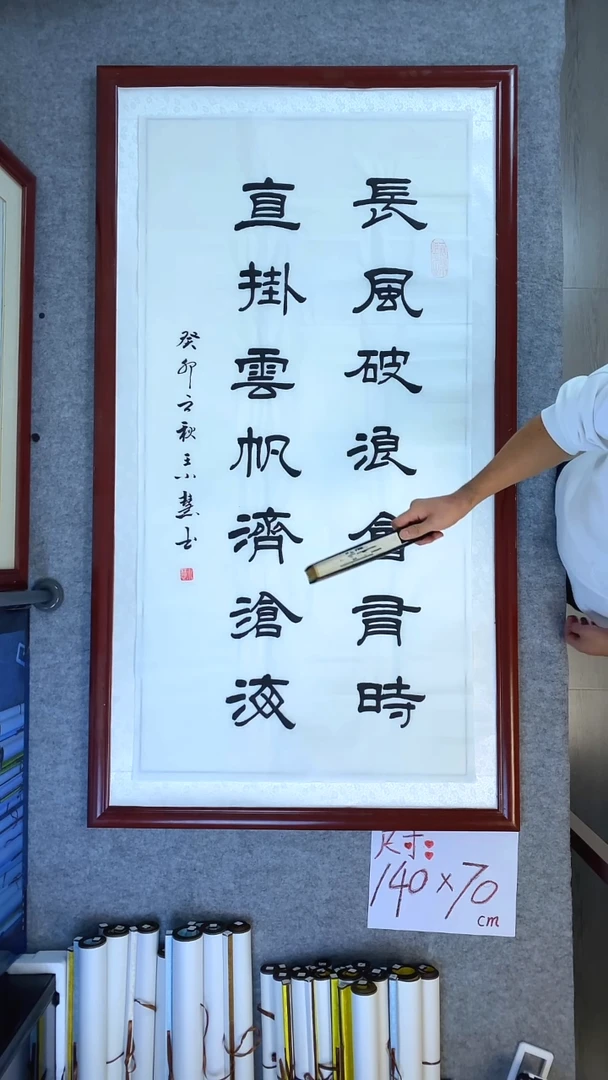 長風破浪會有時
直掛雲帆濟滄海
癸卯立秋王小慧书
尺寸:
140×70
cm